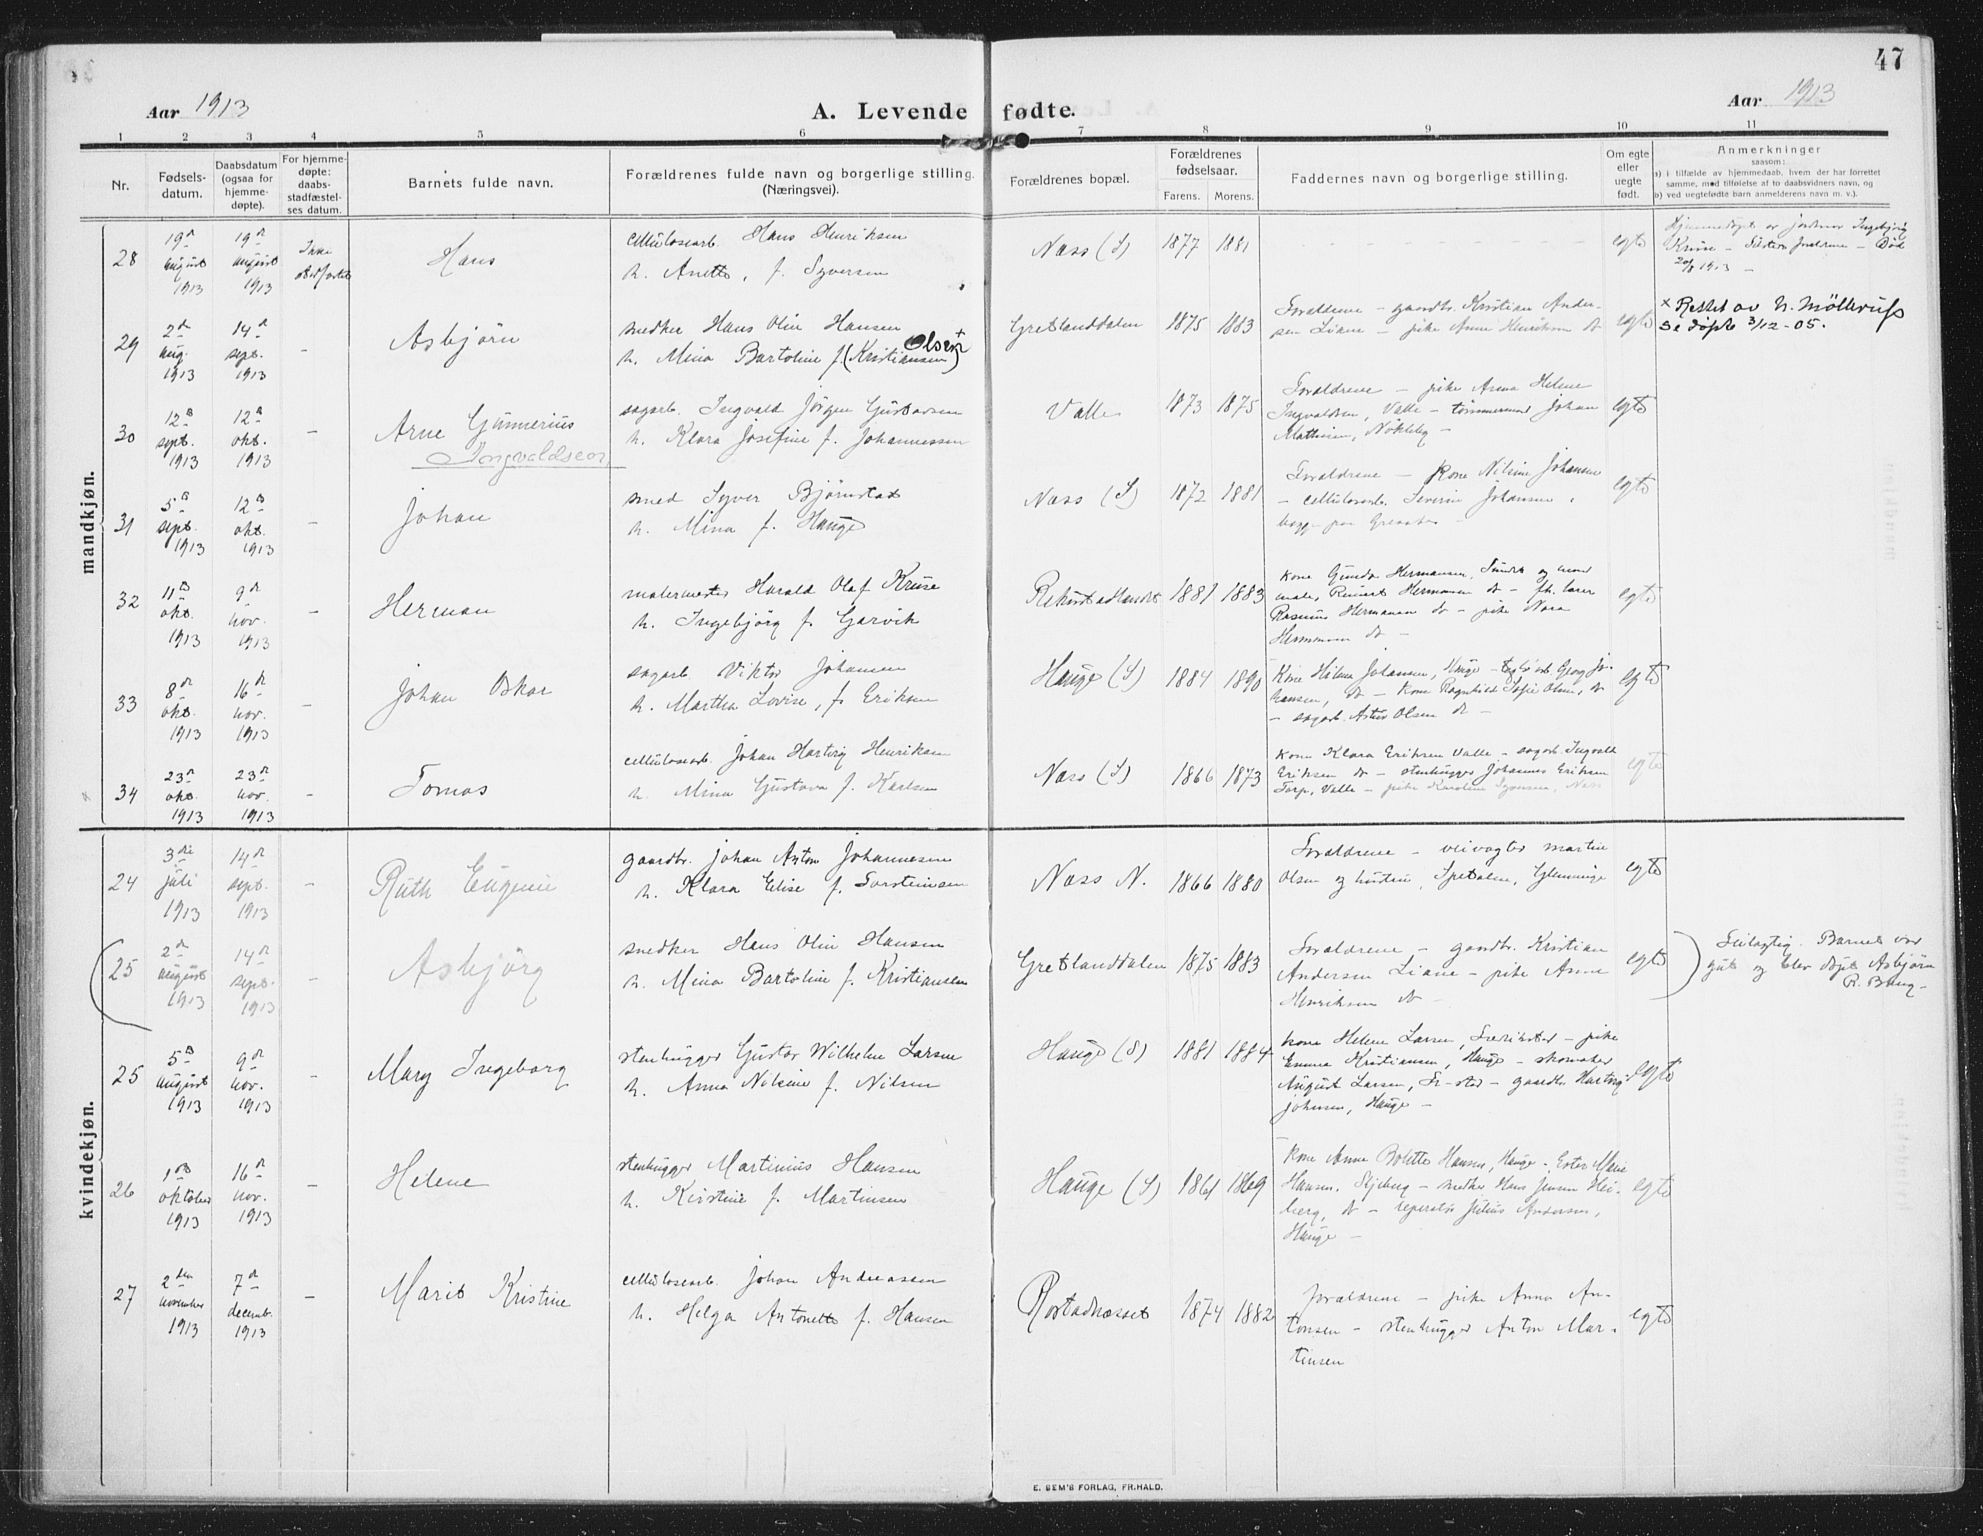 47
Aar 1913
A. Levende fødte.
Aar 1913
1 2 3 4 5 6 7 8 9 10 11
Nr.
Fødsels-
datum.
Daabsdatum
(ogsaa for
hjemme-
døpte).
For hjemme-
døpte:
daabs-
stadfæstel-
ses datum.
Barnets fulde navn.
Forældrenes fulde navn og borgerlige stilling.
(Næringsvei).
Forældrenes bopæl.
Forældrenes
fødselsaar.
Farens. Morens.
Faddernes navn og borgerlige stilling.
Om egte
eller
uegte
født.
Anmerkninger
saasom:
a) i tilfælde av hjemmedaab, hvem der har forrettet
samme, med tilføielse af to daabsvidners navn, og
b) ved uegtefødte barn anmelderens navn m. v.).
mandkjøn.
28
19de august 1913
19de august 1913
Ikke
Hans
cellulosearb. Hans Henriksen
h. Anette, f. Syversen
Næss (S) 1877 1881
egte
Hjemmedøpt av jordmor Ingebjørg
Kruse - Død
1913 -
29
2den aug. 1913
14de sept. 1913
-
Asbjørn
snedker Hans Olin Hansen
Olsen +
h. Mina Bartoline f. (Kristiansen)
Gretlanddalen 1875 1883
Forældrene - gaardbr. Kristian Ander-
sen Liane - pike Anne Henriksen do
egte
x Rettet av N. Møllerufs
se døpte 3/12-05.
30
12te sept. 1913
12te okt. 1913
-
Arne Gunnerius
Ingvaldsen
sagarb. Ingvald Jörgen Gustavsen
h. Klara Josefine f. Johannessen
Valle 1873 1875
Forældrene - pike Anna Helene
Ingvaldsen, Valle - tømmermand Johan
Mathisen, Nøkleby -
egte
31
5te sept. 1913
12te okt. 1913
-
Johan
smed Syver Bjørnstad
h. Mina f. Hauge
Næss (S) 1872 1881
Forældrene - Kone Nilsine Johansen
- cellulosearb. Severin Johansen,
begge paa Greaaker -
egte
32
11te okt. 1913
9de nov. 1913
-
Herman
malermester Harald Olaf Kruse
h. Ingebjørg f. Garvik
Rekustadlandet 1881 1883
kone Gunda Hermansen, Sundet og mand
maler, Reinert Hermansen do - fh. lærer
Rasmus Hermansen do - pike Nora
Hermansen do -
egte
33
8de okt. 1913
16de nov. 1913
-
Johan Oskar
sagarb. Viktor Johansen
h. Martha Lovise, f. Eriksen
Hauge (S) 1884 1890
Kone Helene Johansen, Hauge - teglv.arb. Georg Jo-
hansen, do - Kone Ragnhild Sofie Olsen, do
- sagarb. Astor Olsen do -
egte
34
23de okt. 1913
23de nov. 1913
-
Tomas
cellulosearb. Johan Hartvig Henriksen
h. Mina Gustava f. Karlsen
Næss (S) 1866 1873
kone Klara Eriksen Valle - sagarb. Ingvald
Eriksen do - stenhugger Johannes Eriksen
Torp, Valle - pike Karoline Syversen, Næss
egte
kvindekjøn.
24
3die juli 1913
14de sept. 1913
-
Ruth Eugenie
gaardbr. Johan Anton Johannesen
h. Klara Elise f. Torsteinsen
Næss N. 1866 1880
Forældrene - veivogter Martin
Olsen og hustru, Spetalen, Glemminge
egte
25
2den august 1913
14de sept. 1913
-
Asbjörg
snedker Hans Olin Hansen
h. Mina Bartoline f. Kristiansen
Gretlanddalen 1875 1883
Forældrene - gaardbr. Kristian
Andersen Liane - pike Anne
Henriksen do -
egte
Feilagtig. Barnet var
gut og blev døpt Asbjørn
R. Bang -
25
5te august 1913
9de nov. 1913
-
Mary Ingeborg
stenhugger Gustav Wilhelm Larsen
h. Anna Nilsine f. Nilsen
Hauge (S) 1881 1884
kone Helene Larsen, - pike
Emma Kristiansen, Hauge - skomaker
August Larsen, - gaardbr. Hartvig
Johnsen, Hauge -
egte
26
1ste oktober 1913
16de nov. 1913
-
Helene
stenhugger Martinius Hansen
h. Kirstine f. Martinsen
Hauge (S) 1861 1869
Kone Anne Bolette Hansen, Hauge - Ester Marie
Hansen, Skjeberg - snedker Hans Jensen Hei-
berg, do - reperatør Julius Andersen,
Hauge -
egte
27
2den november 1913
7de decemb. 1913
-
Marit Kristine
cellulosearb. Johan Andreassen
h. Helga Antonette f. Hansen
Rostadnæsset 1874 1882
forældrene - pike Anna An-
tonsen - stenhugger Anton Mar-
tinsen
egte
E. SEM'S FORLAG, FR.HALD.